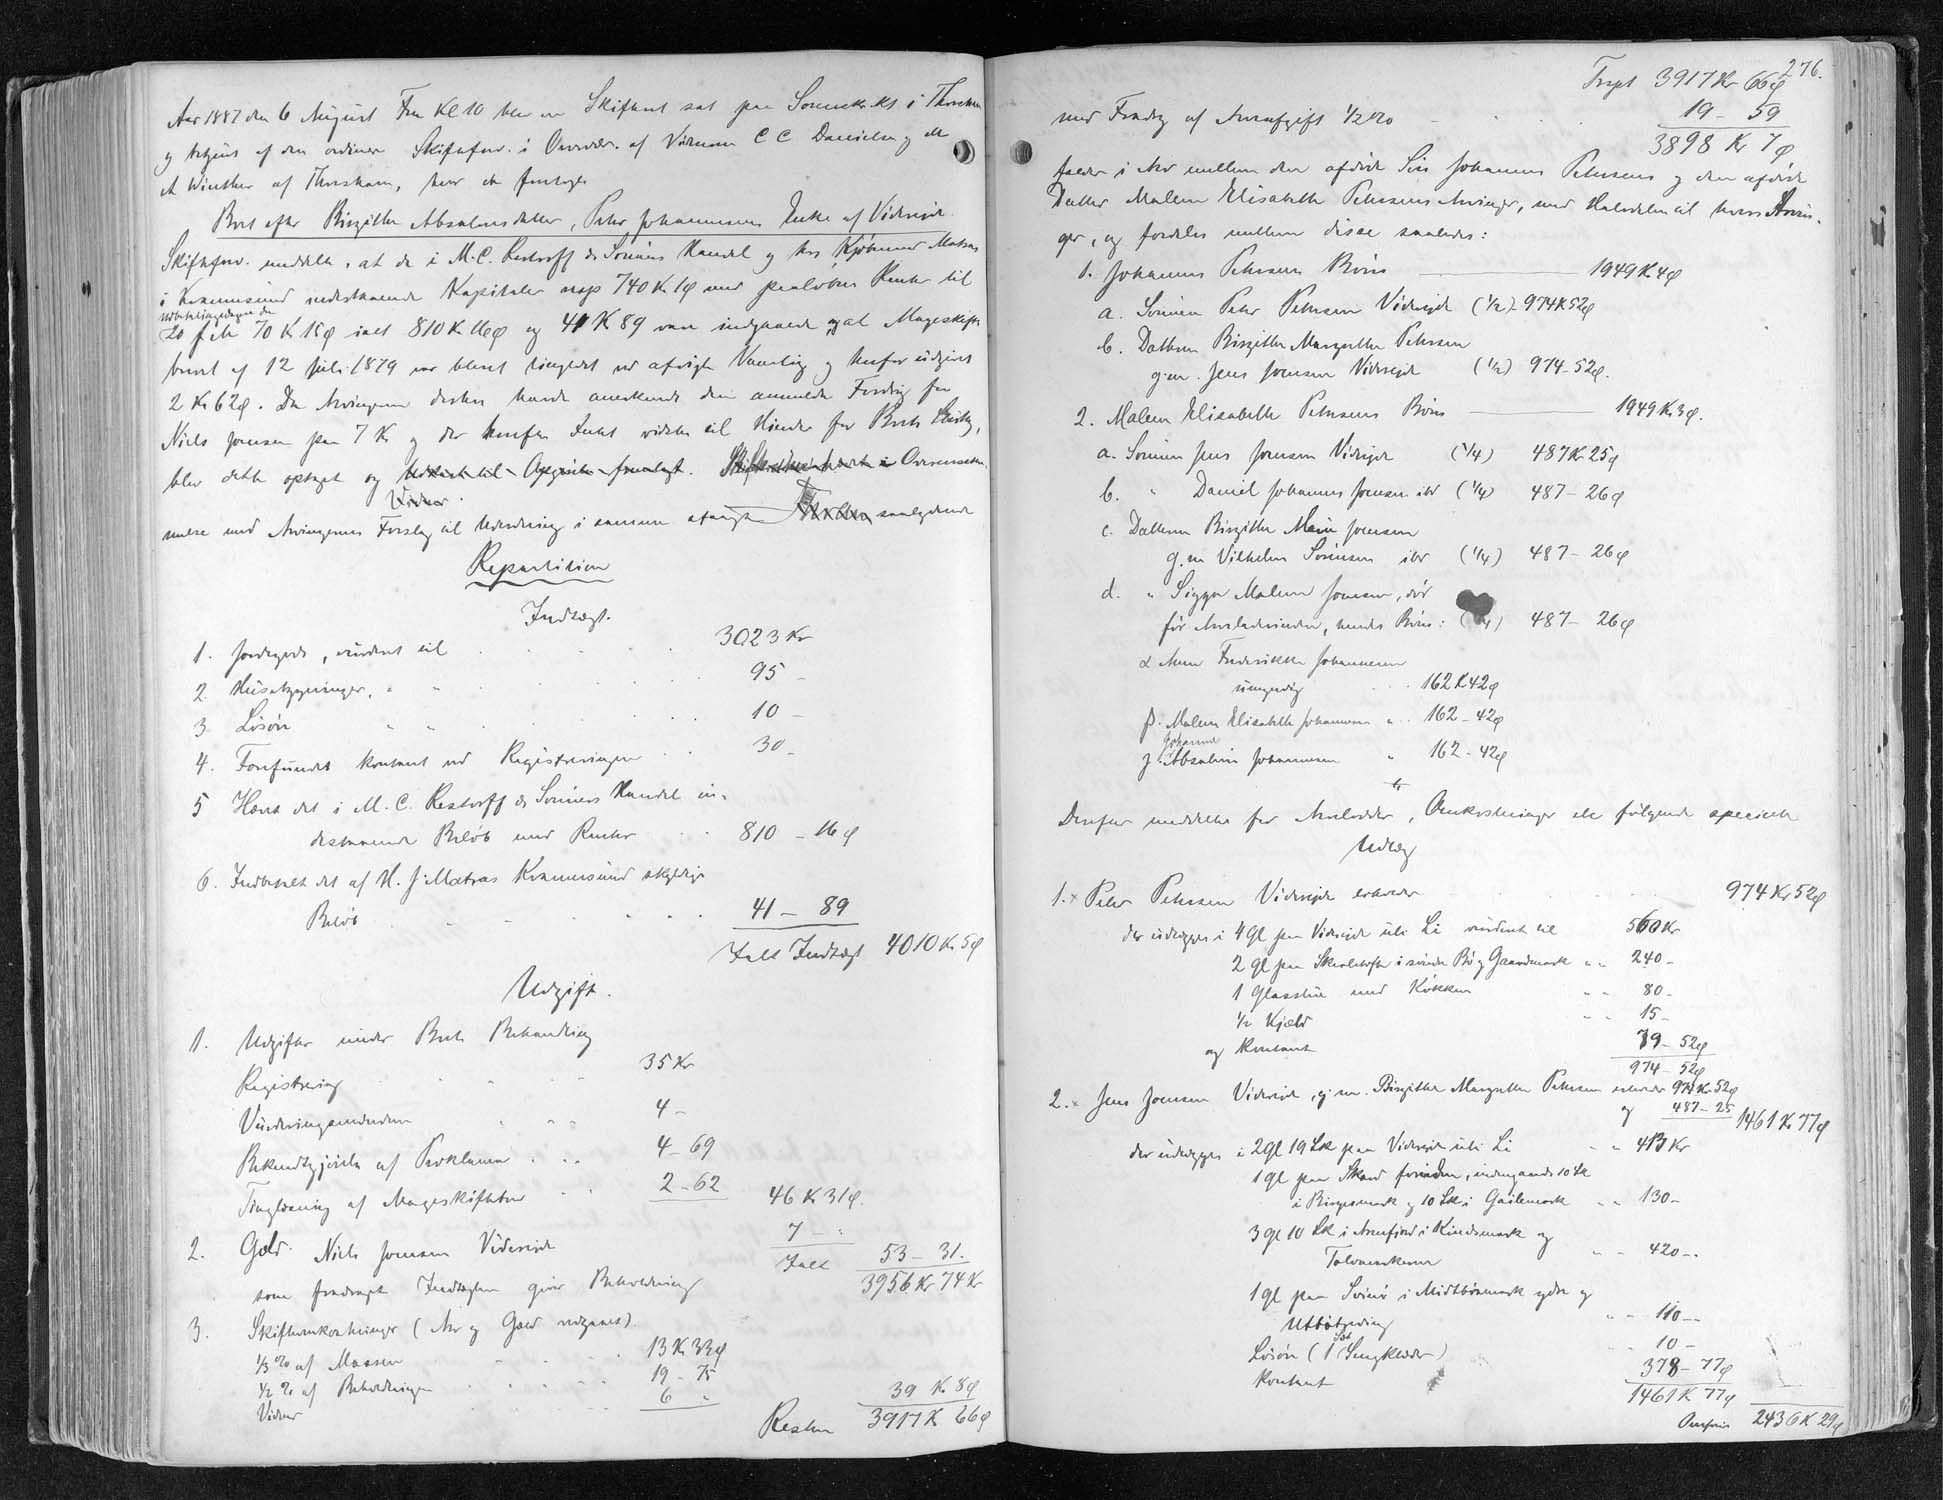 Aar 1887 den 6 August Fm Kl 10 blev en Skifteret sat paa Sorenskr.kt i Thorshavn
og betjent af den ordinære Skifteforv. i Overvær. af Vidnerne C C Danielsen og
A Winther af Thorshavn, hvor da foretoges
Boet efter Birgitte Absalonsdatter, Peter Johannesens Enke af Viderejde.
Skifteforv. meddelte, at de i M. C. Restorff & Sönners Handel og hos Kjöbmand Matras
i Kommesund indestaaende Kapitaler resp 740 Kr 1 ø med paalöbne Renter til
Udbetalingsdagen den
20 f M 70 K 15 ø ialt 810 K 16 ø og 41 K 89 vare indgaaede og at Mageskifte
brevet af 12 Juli 1879 var blevet tinglæst ved afvigte Vaarting og herfor udgivet
2 Kr 62 ø. Da Arvingerne derhos havde anerkendt den anmeldte Fordring fra
Niels Joensen paa 7 Kr og der herefter Intet vidstes til Hinder for Boets Slutng,
blev dette optaget og Overensstem-
melse med Arvingernes Forslag til Udlodning i samme afsagt saalydende
Repartition
Indtægt.
1. Jordegods, vurderet til 3023 Kr
2. Husebygninger, " " 95 -
3. Lösöre " " 10 -
4. Forefundet kontant ved Registreringen 30 -
5 Hævet det i M. C. Restorff & Sönners Handel in-
destaaende Belöb med Renter 810 - 16 ø
6. Indbetalt det af H. J. Matras Kommesund skyldige
Belöb 41 - 89
Ialt Indtægt 4010 Kr 5 ø
Udgift.
1. Udgifter under Boets Behandling
Registrering 35 Kr
Vurderingsmændene 4 -
Bekendtgjörelse af Proklama 4 - 69
Tinglæsning af Mageskiftebrev 2 - 62 46 K 31 ø.
2. Gæld. Niels Joensen Viderejde 7 - "
Ialt 53 - 31.
som fradraget Indtægten giver Beholdning 3956 Kr 74 Kr
3. Skifteomkostninger (Arv og Gæld vedgaaet).
1/3 % af Massen 13 K 33 ø
1/2 % af Beholdningen 19 - 75
Vidner 6 " 39 K 8 ø
Resten 3917 K 66 ø
276.
Trspt 3917 Kr 66 ø
med Fradrag af Arveafgift 1/2 % 19 - 59
3898 Kr 7 ø
falder i Arv mellem den afdöde Sön Johannes Petersens og den afdöde
Datter Malene Elisabeth Petersens Arvinger, med Halvdelen til hvers Arvin-
ger, og fordeles mellem disse saaledes:
1. Johannes Petersens Börn 1949 K 4 ø
a. Sönnen Peter Petersen Viderejde (1/2) 974 K 52 ø
b. Datteren Birgitte Margrethe Petersen
g. m. Jens Joensen Viderejde (1/2) 974 - 52 ø.
2. Malene Elisabeth Petersens Börn 1949 Kr 3 ø.
a. Sönnen Jens Joensen Viderejde (1/4) 487 Kr 25 ø
b. " Daniel Johannes Joensen ibd (1/4) 487 - 26 ø
c. Datteren Birgitte Marie Joensen
g. m Vilhelm Sörensen ibd (1/4) 487 - 26 ø
d. " Sigga Malene Joensen, död
för Arveladerinden, hendes Börn: (1/4) 487 - 26 ø
α Anne Frederikke Johannesen
umyndig 162 K 42 ø
β. Malene Elisabeth Johannesen " 162 - 42 ø
Johanne
γ Absaline Johannesen " 162 - 42 ø
Derefter meddeltes for Arvelodder, Omkostninger etc følgende specielle
Udlæg
1. × Peter Petersen Viderejde erholder 974 Kr 52 ø
der udlægges i 4 Gl paa Viderejde uti Li vurderet til 560 Kr
2 Gl paa Skaaletofte i söndre Bö og Gaardmark " " 240 -
1 Glasstue med Kökken " " 80 -
1/2 Kjæld " " 15 -
og kontant 79 - 52 ø
974 - 52 ø
2. × Jens Joensen Viderejde, g. m. Birgitte Margrethe Petersen erholder 974 Kr 52 ø
og 487 - 25 1461 K 77 ø
der udlægges i 2 Gl 19 Sk paa Viderejde uti Li " " 413 Kr
1 Gl paa Skard forinden, indengaards 10 Sk
i Birgesmark og 10 Sk i Gailemark " " 130 -
3 Gl 10 Sk i Arnefjord i Kindsmark og
" " 420 -
1 Gl paa Svinö i Midtbömark ydre og
Utböt " " 110 -
Lösöre (1 Sæt Sengklæder) 10 -
kontant 378 - 77 ø
1461 K 77 ø
2436 K 29 ø